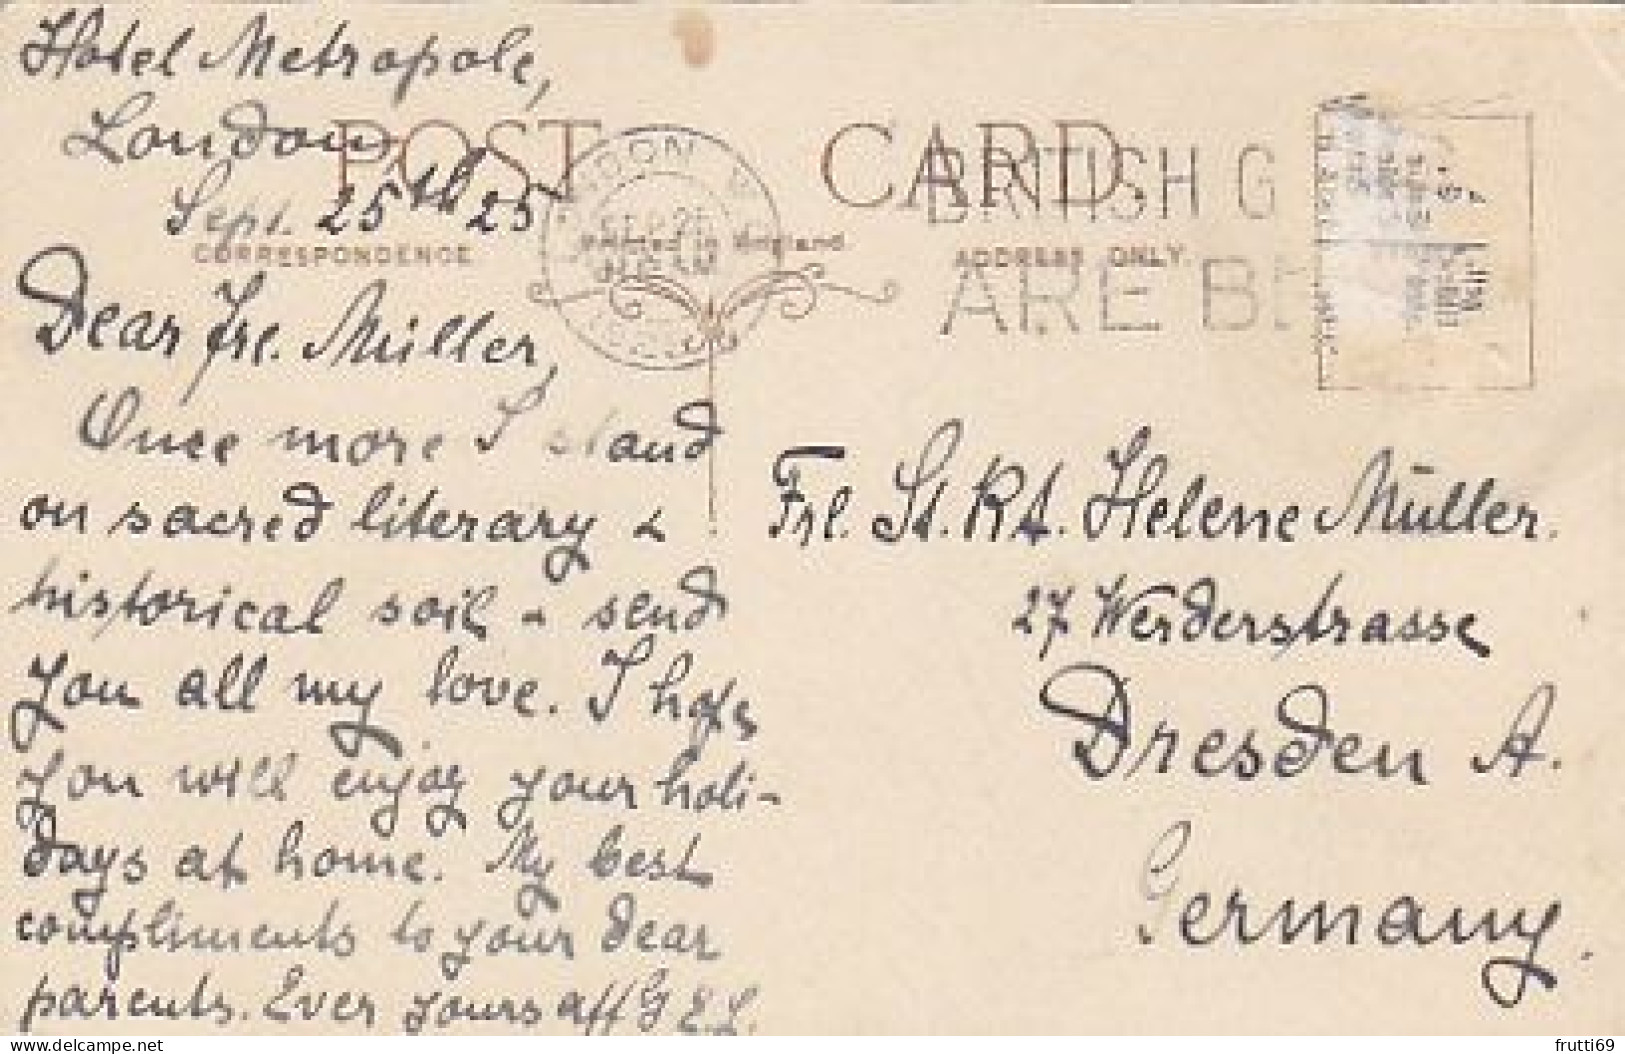 Hotel Metropole,
London
Sept. 25th 25
POST CARD.
CORRESPONDENCE
Printed in England
ADDRESS ONLY.
LONDON W
SEP 25
BRITISH G
ARE BE
Dear Frl. Müller,
Once more I stand
on sacred literary &
historical soil & send
you all my love. I hope
you will enjoy your holi-
days at home. My best
compliments to your dear
parents. Ever yours aff G.E.L.
Frl. St. Rt. Helene Müller.
27 Werderstrasse
Dresden A.
Germany.
delcampe.net
frutti69